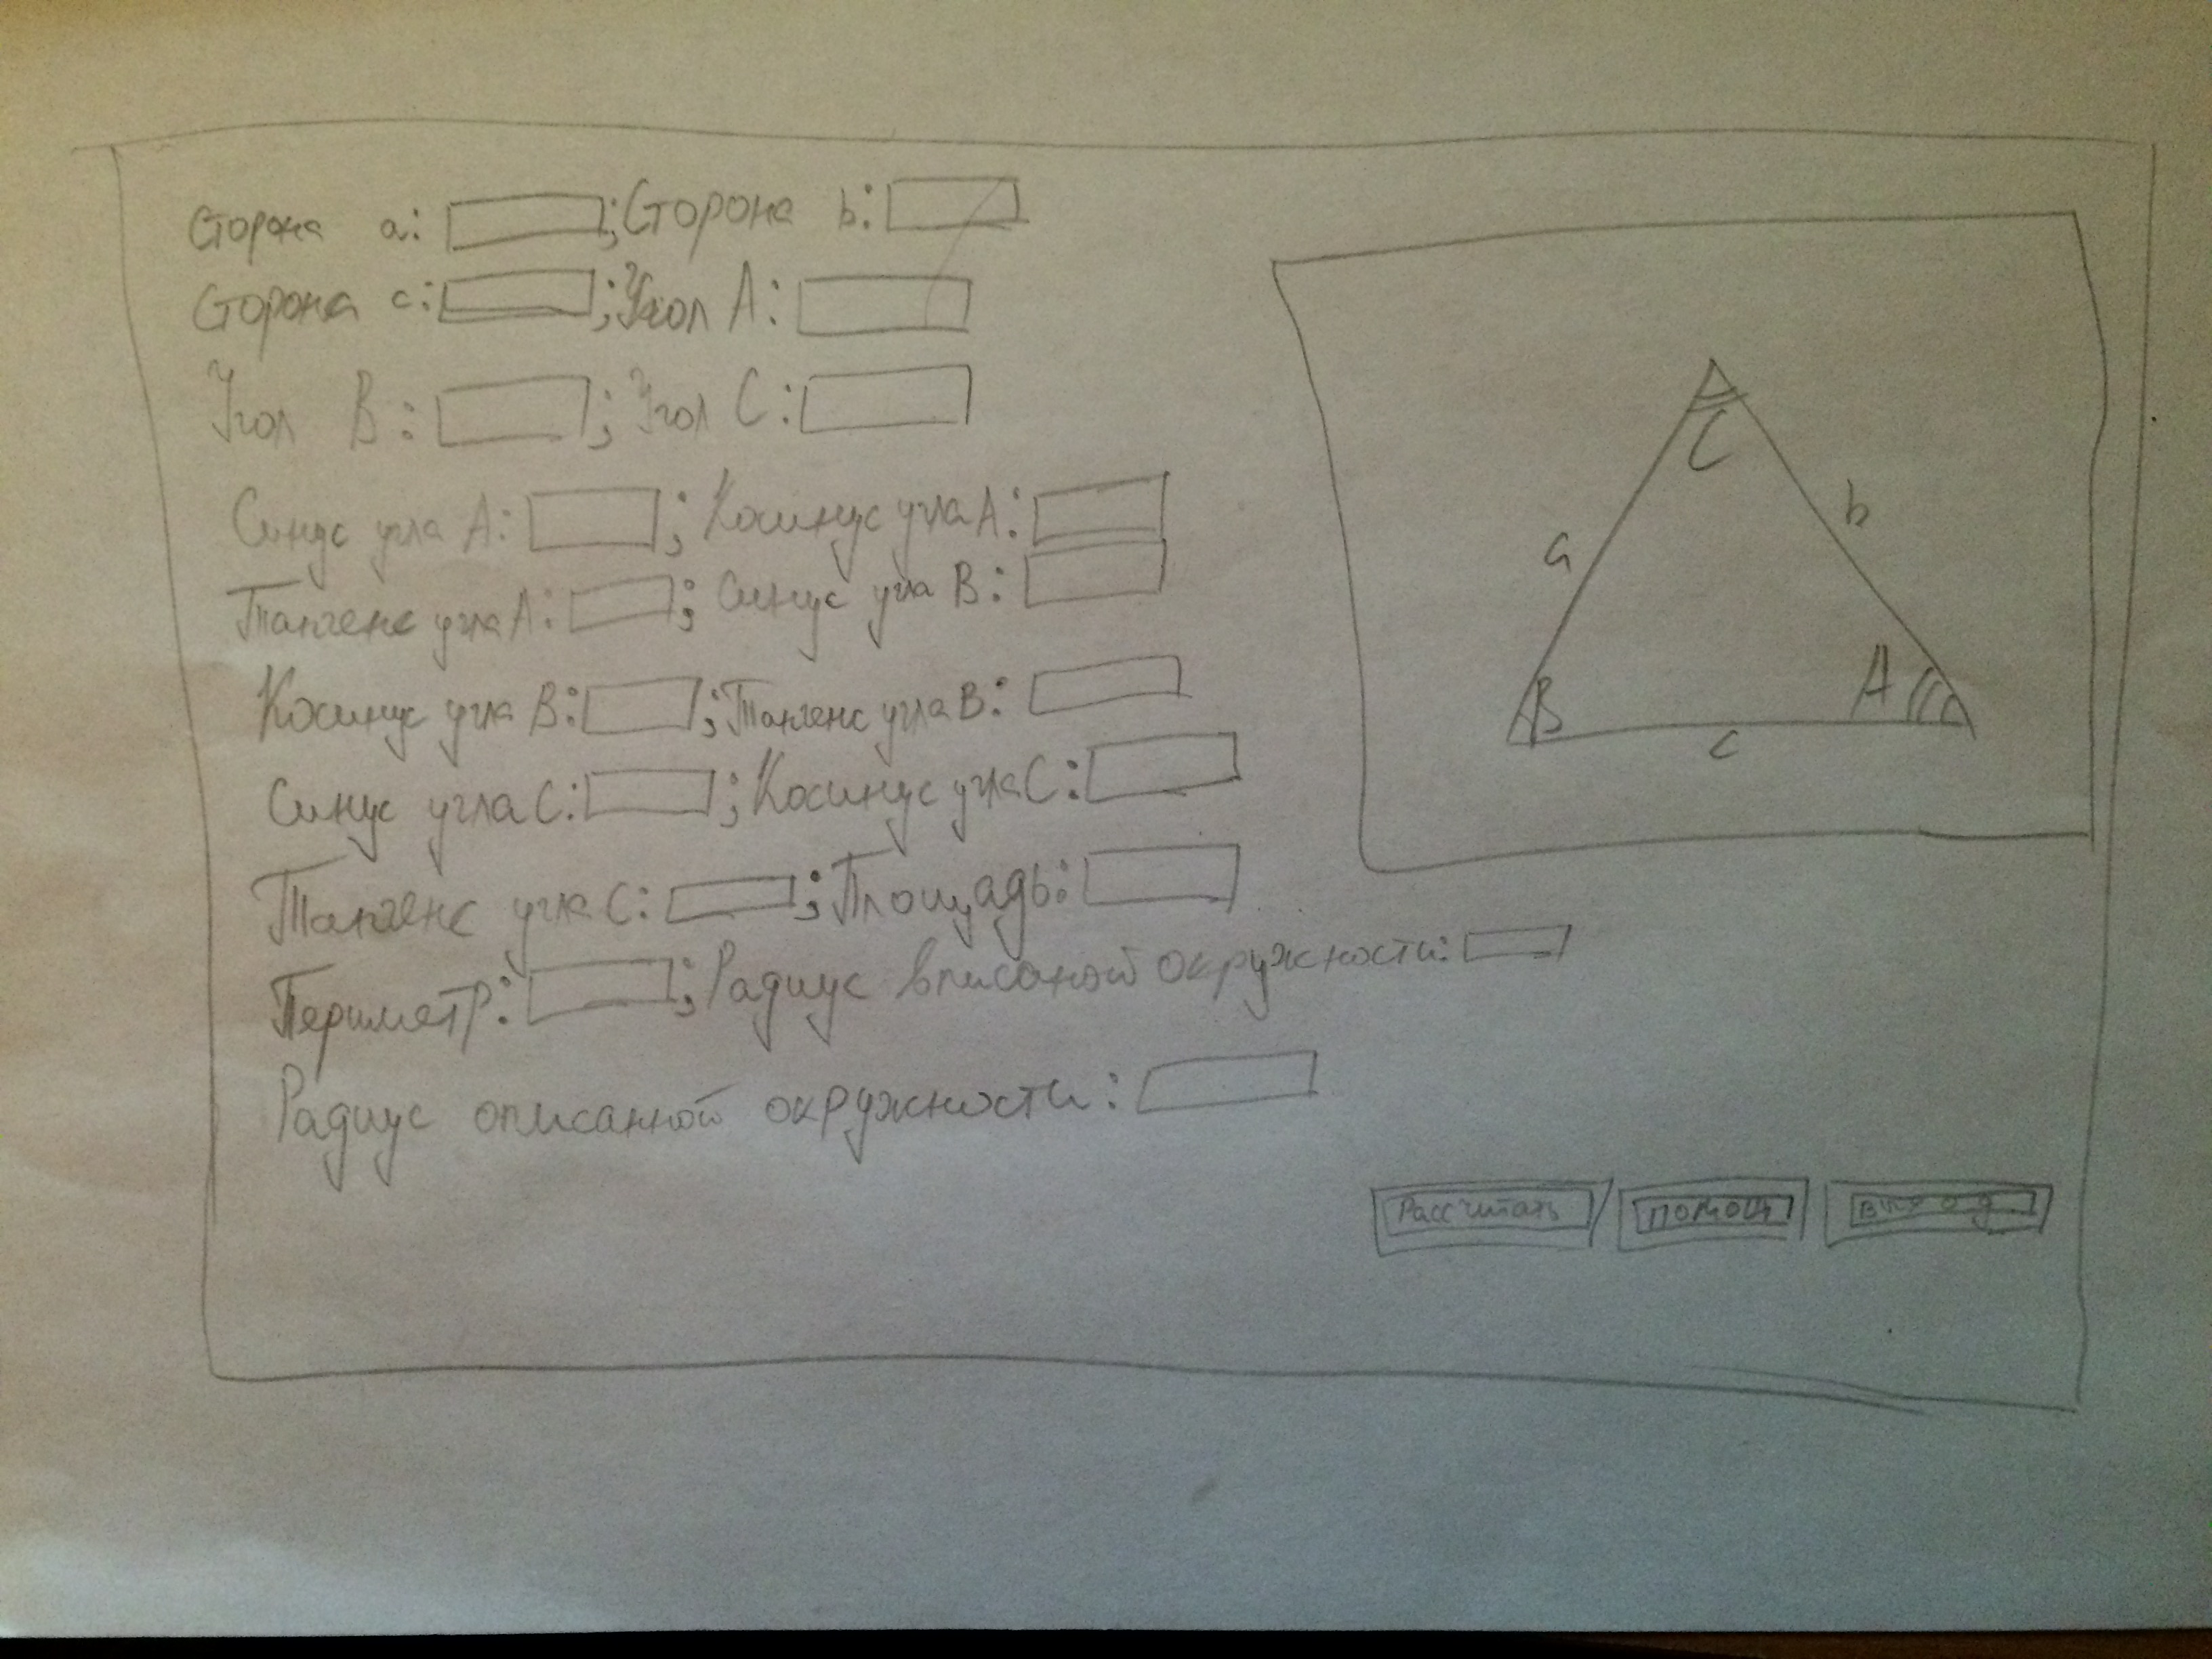 Сторона a: ; Сторона b:
Сторона c: ; Угол A:
Угол B: ; Угол C:
Синус угла A: ; Косинус угла A:
Тангенс угла A: ; Синус угла B:
Косинус угла B: ; Тангенс угла B:
Синус угла C: ; Косинус угла C:
Тангенс угла C: ; Площадь:
Периметр: ; Радиус вписаной окружности:
Радиус описанной окружности:
C
a
b
B
A
c
Рассчитать
Помощь
Выход